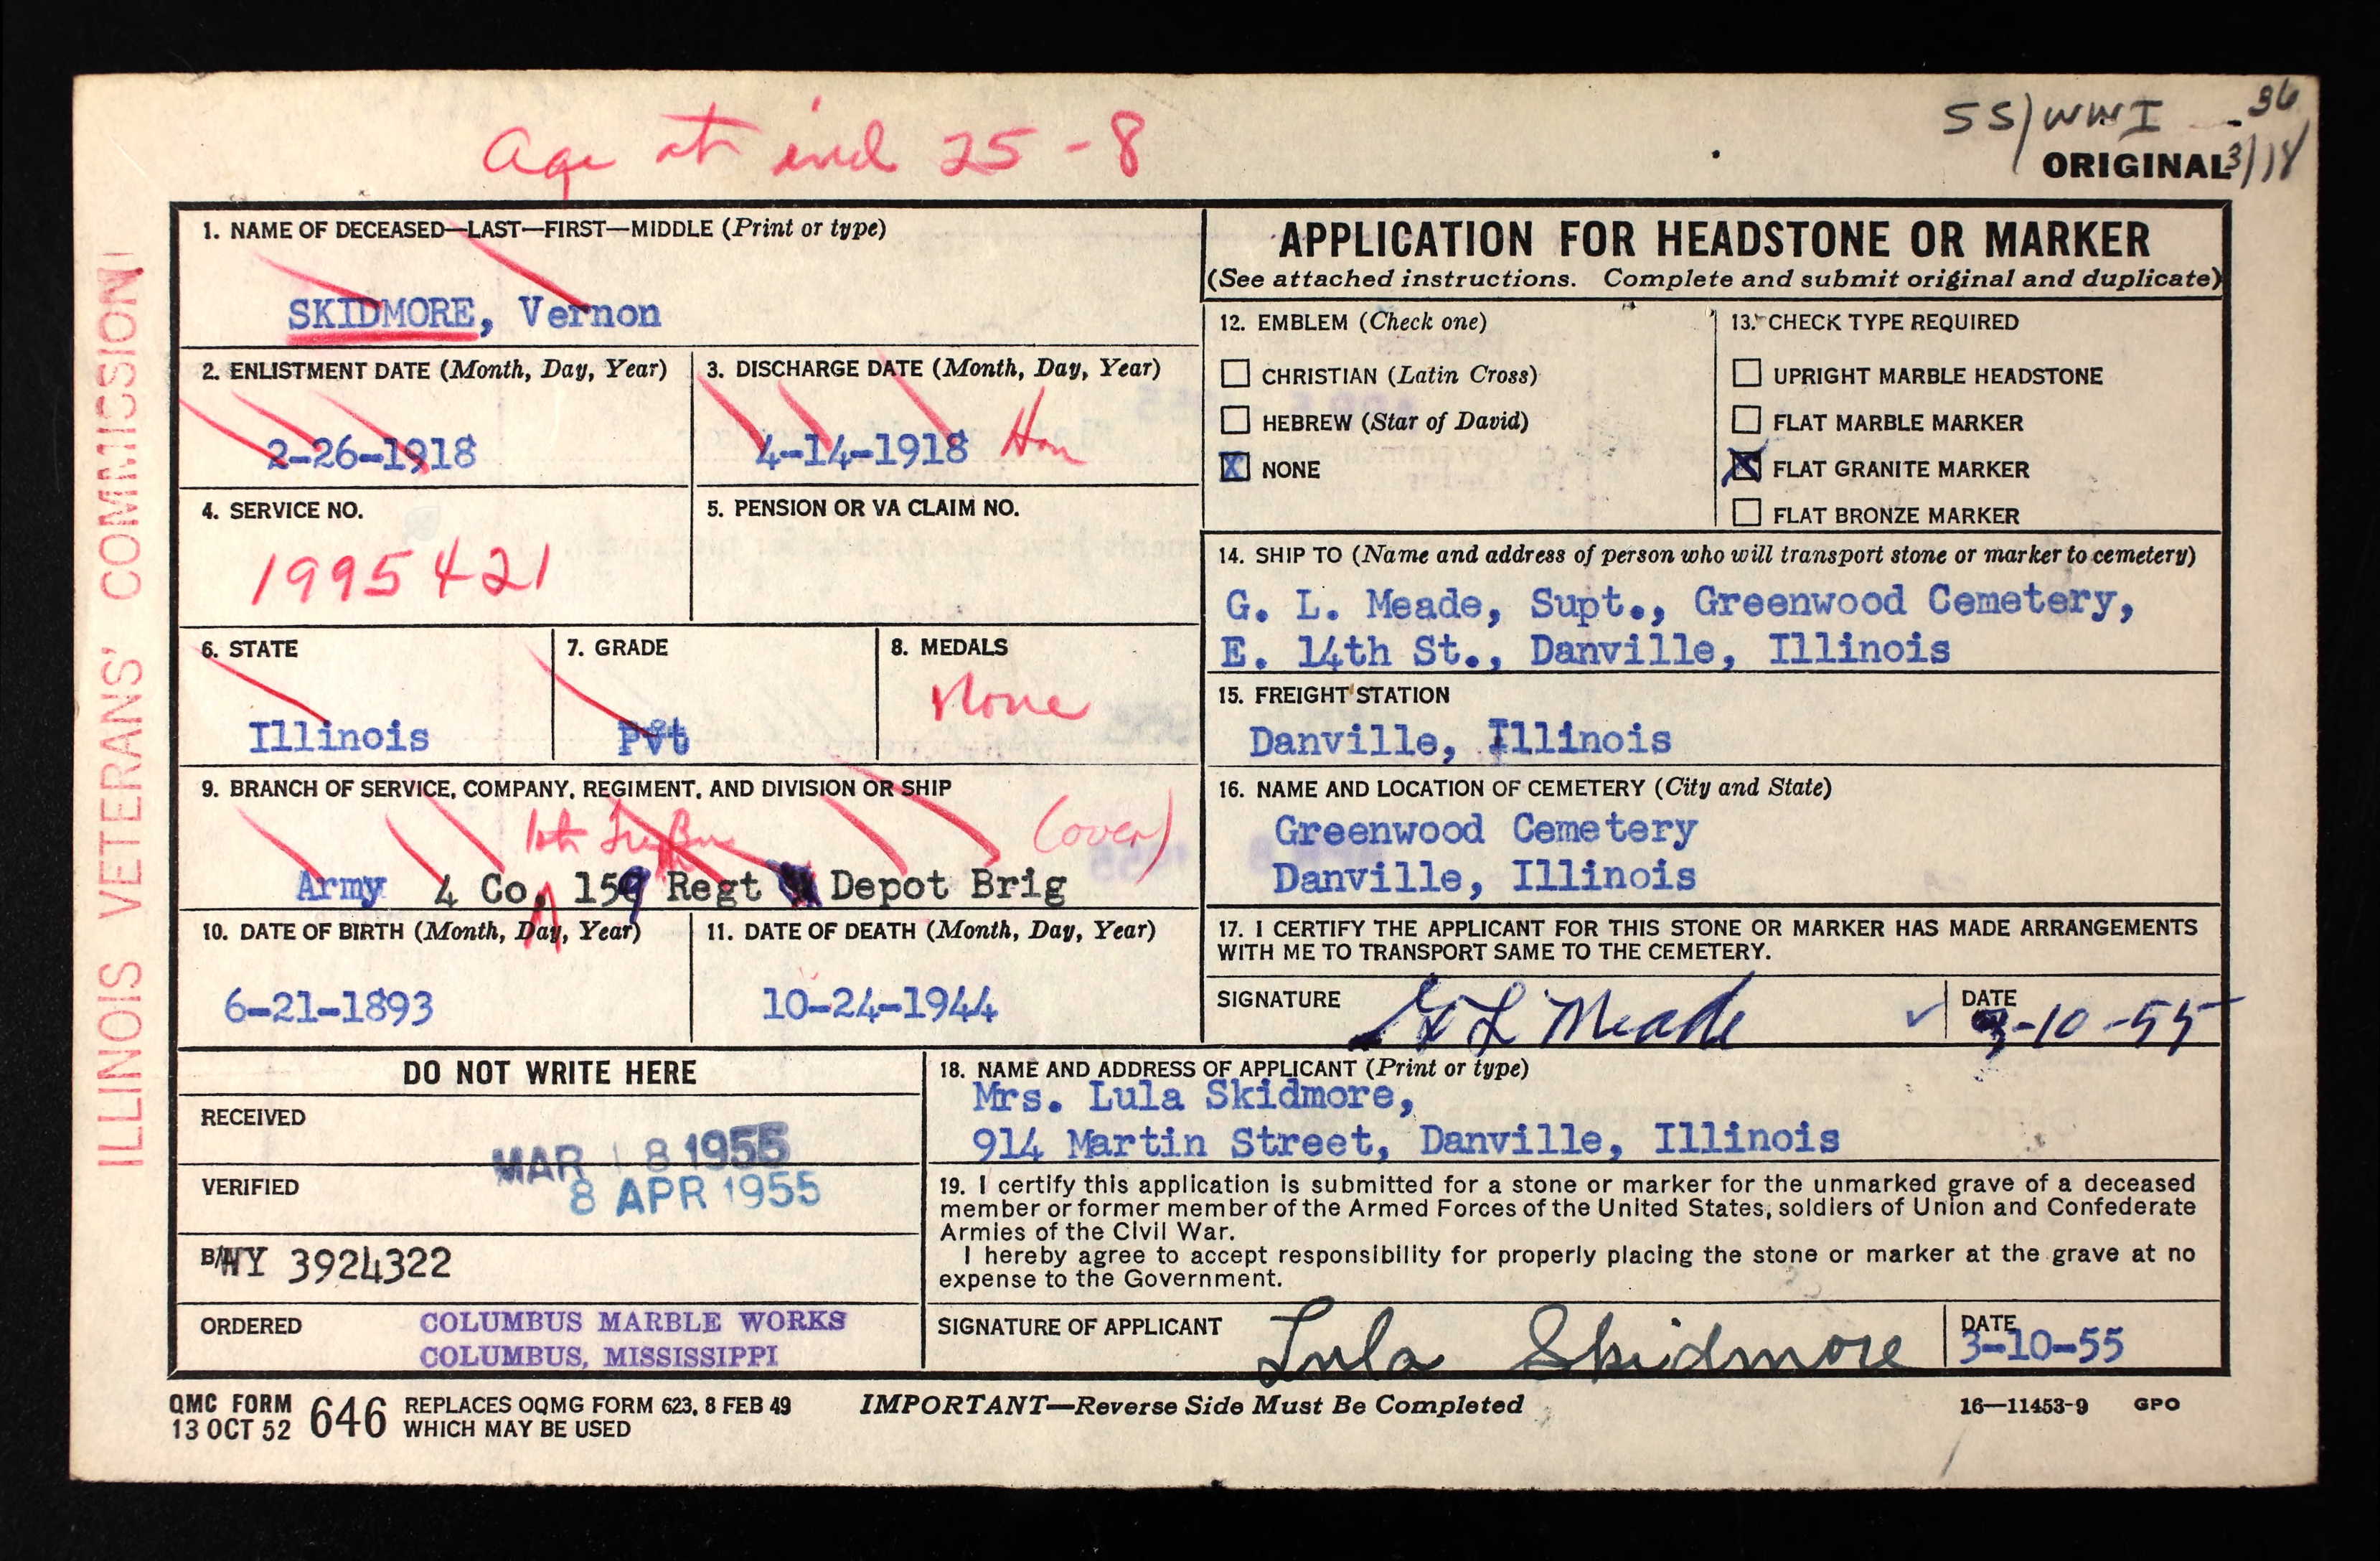 Age at ind 25-8
SS/WWI
36
3/18
ORIGINAL
ILLINOIS VETERANS' COMMISSION
1. NAME OF DECEASED—LAST—FIRST—MIDDLE (Print or type)
SKIDMORE, Vernon
2. ENLISTMENT DATE (Month, Day, Year)
2-26-1918
3. DISCHARGE DATE (Month, Day, Year)
4-14-1918 Hon
4. SERVICE NO.
1995421
5. PENSION OR VA CLAIM NO.
6. STATE
Illinois
7. GRADE
Pvt
8. MEDALS
None
9. BRANCH OF SERVICE, COMPANY, REGIMENT, AND DIVISION OR SHIP
(over)
Army 4 Co, 159 Regt Depot Brig
10. DATE OF BIRTH (Month, Day, Year)
6-21-1893
11. DATE OF DEATH (Month, Day, Year)
10-24-1944
APPLICATION FOR HEADSTONE OR MARKER
(See attached instructions. Complete and submit original and duplicate)
12. EMBLEM (Check one)
CHRISTIAN (Latin Cross)
HEBREW (Star of David)
X NONE
13. CHECK TYPE REQUIRED
UPRIGHT MARBLE HEADSTONE
FLAT MARBLE MARKER
X FLAT GRANITE MARKER
FLAT BRONZE MARKER
14. SHIP TO (Name and address of person who will transport stone or marker to cemetery)
G. L. Meade, Supt., Greenwood Cemetery,
E. 14th St., Danville, Illinois
15. FREIGHT STATION
Danville, Illinois
16. NAME AND LOCATION OF CEMETERY (City and State)
Greenwood Cemetery
Danville, Illinois
17. I CERTIFY THE APPLICANT FOR THIS STONE OR MARKER HAS MADE ARRANGEMENTS
WITH ME TO TRANSPORT SAME TO THE CEMETERY.
SIGNATURE
G L Meade
DATE
3-10-55
DO NOT WRITE HERE
RECEIVED
MAR 18 1955
VERIFIED
8 APR 1955
B/
NY 3924322
ORDERED
COLUMBUS MARBLE WORKS
COLUMBUS, MISSISSIPPI
18. NAME AND ADDRESS OF APPLICANT (Print or type)
Mrs. Lula Skidmore,
914 Martin Street, Danville, Illinois
19. I certify this application is submitted for a stone or marker for the unmarked grave of a deceased
member or former member of the Armed Forces of the United States, soldiers of Union and Confederate
Armies of the Civil War.
I hereby agree to accept responsibility for properly placing the stone or marker at the grave at no
expense to the Government.
SIGNATURE OF APPLICANT
Lula Skidmore
DATE
3-10-55
QMC FORM
13 OCT 52
646
REPLACES OQMG FORM 623, 8 FEB 49
WHICH MAY BE USED
IMPORTANT—Reverse Side Must Be Completed
16—11453-9 GPO